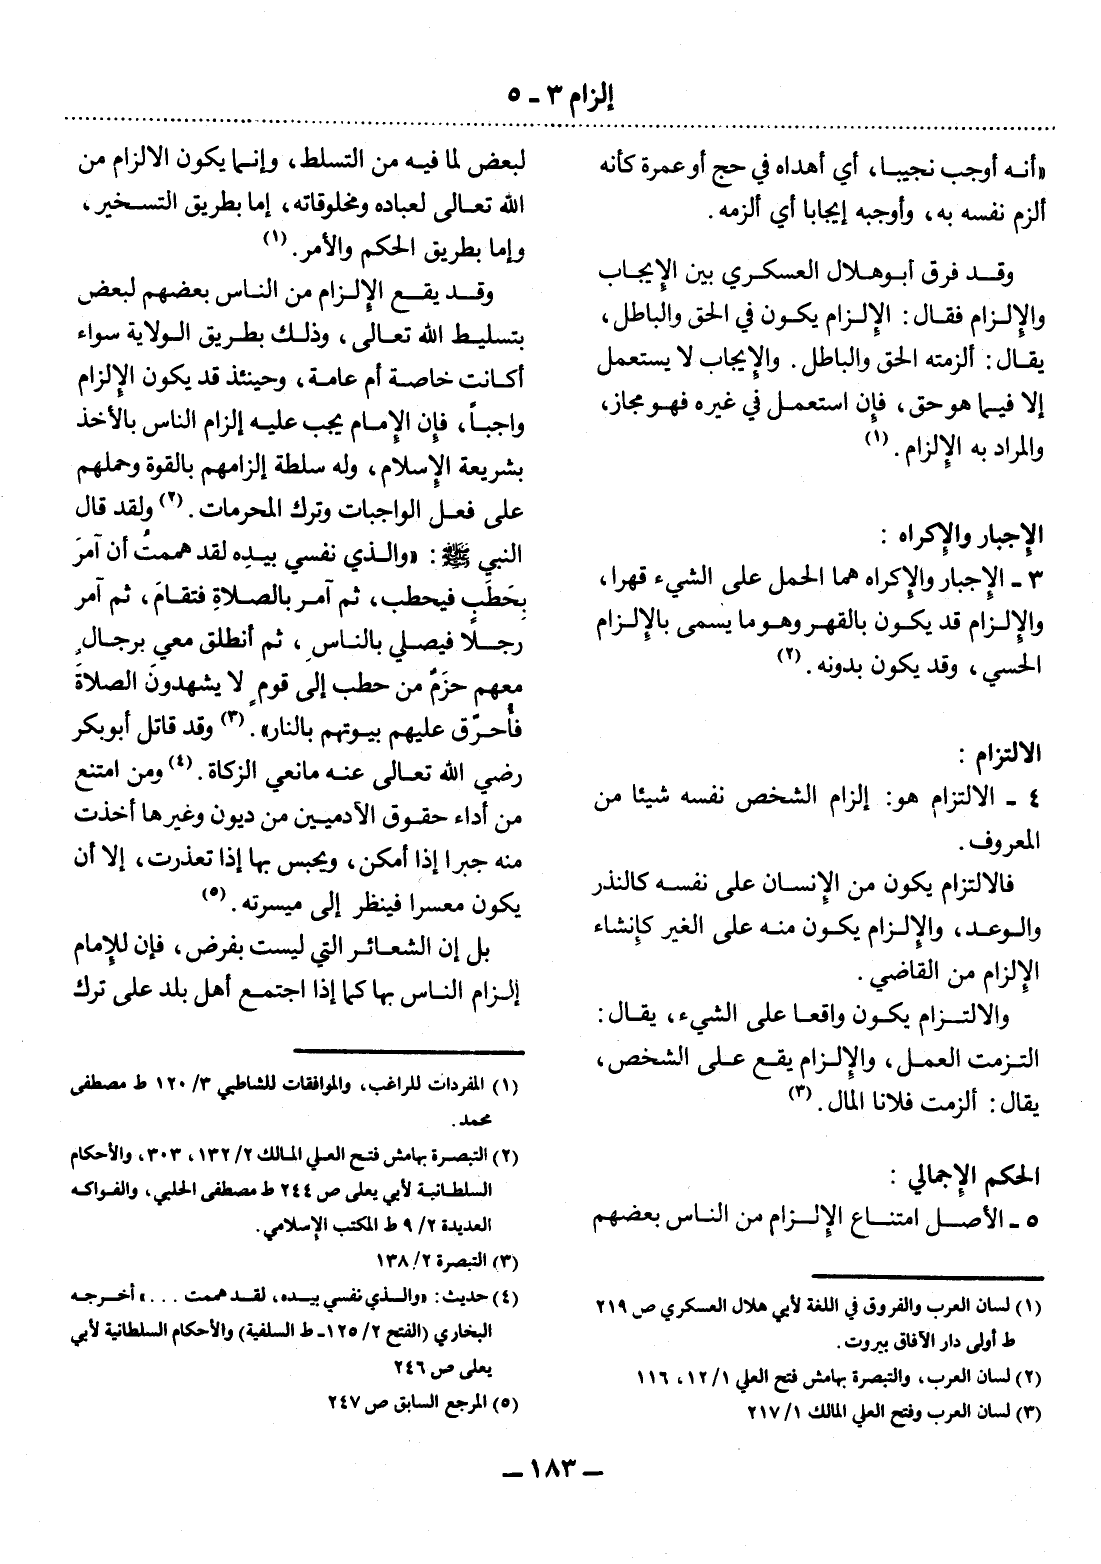 إلزام ٣ - ٥
«أنه أوجب نجيبا، أي أهداه في حج أو عمرة كأنه
ألزم نفسه به، وأوجبه إيجابا أي ألزمه.
وقد فرق أبو هلال العسكري بين الإيجاب
والإلزام فقال: الإلزام يكون في الحق والباطل،
يقال: ألزمته الحق والباطل. والإيجاب لا يستعمل
إلا فيما هو حق، فإن استعمل في غيره فهو مجاز،
والمراد به الإلزام. (١)
الإجبار والإكراه :
٣ - الإجبار والإكراه هما الحمل على الشيء قهرا،
والإلزام قد يكون بالقهر وهو ما يسمى بالإلزام
الحسي، وقد يكون بدونه. (٢)
الالتزام :
٤ - الالتزام هو: إلزام الشخص نفسه شيئا من
المعروف.
فالالتزام يكون من الإنسان على نفسه كالنذر
والوعد، والإلزام يكون منه على الغير كإنشاء
الإلزام من القاضي.
والالتزام يكون واقعا على الشيء، يقال:
التزمت العمل، والإلزام يقع على الشخص،
يقال: ألزمت فلانا المال. (٣)
الحكم الإجمالي :
٥ - الأصل امتناع الإلزام من الناس بعضهم
(١) لسان العرب والفروق في اللغة لأبي هلال العسكري ص ٢١٩
ط أولى دار الآفاق بيروت.
(٢) لسان العرب، والتبصرة بهامش فتح العلي ١/ ١٢، ١١٦
(٣) لسان العرب وفتح العلي المالك ١/ ٢١٧
لبعض لما فيه من التسلط، وإنما يكون الالزام من
الله تعالى لعباده ومخلوقاته، إما بطريق التسخير،
وإما بطريق الحكم والأمر. (١)
وقد يقع الإلزام من الناس بعضهم لبعض
بتسليط الله تعالى، وذلك بطريق الولاية سواء
أكانت خاصة أم عامة، وحينئذ قد يكون الإلزام
واجباً، فإن الإمام يجب عليه إلزام الناس بالأخذ
بشريعة الإسلام، وله سلطة إلزامهم بالقوة وحملهم
على فعل الواجبات وترك المحرمات. (٢) ولقد قال
النبي ﷺ: «والذي نفسي بيدِه لقد هممتُ أن آمرَ
بِحَطَبٍ فيحطب، ثم آمر بالصلاةِ فتقامَ، ثم آمر
رجلا فيصلي بالناسِ، ثم أنطلق معي برجالٍ
معهم حزَمٌ من حطب إلى قومٍ لا يشهدونَ الصلاةَ
فأُحرّق عليهم بيوتهم بالنار». (٣) وقد قاتل أبوبكر
رضي الله تعالى عنه مانعي الزكاة. (٤) ومن امتنع
من أداء حقوق الآدميين من ديون وغيرها أخذت
منه جبرا إذا أمكن، ويحبس بها إذا تعذرت، إلا أن
يكون معسرا فينظر إلى ميسرته. (٥)
بل إن الشعائر التي ليست بفرض، فإن للإمام
إلزام الناس بها كما إذا اجتمع أهل بلد على ترك
(١) المفردات للراغب، والموافقات للشاطبي ٣/ ١٢٠ ط مصطفى
محمد.
(٢) التبصرة بهامش فتح العلي المالك ٢/ ١٣٢، ٣٠٣، والأحكام
السلطانية لأبي يعلى ص ٢٤٤ ط مصطفى الحلبي، والفواكه
العديدة ٢/ ٩ ط المكتب الإسلامي.
(٣) التبصرة ٢/ ١٣٨
(٤) حديث: «والذي نفسي بيده، لقد هممت . . .» أخرجه
البخاري (الفتح ٢/ ١٢٥ - ط السلفية) والأحكام السلطانية لأبي
يعلى ص ٢٤٦
(٥) المرجع السابق ص ٢٤٧
– ١٨٣ –